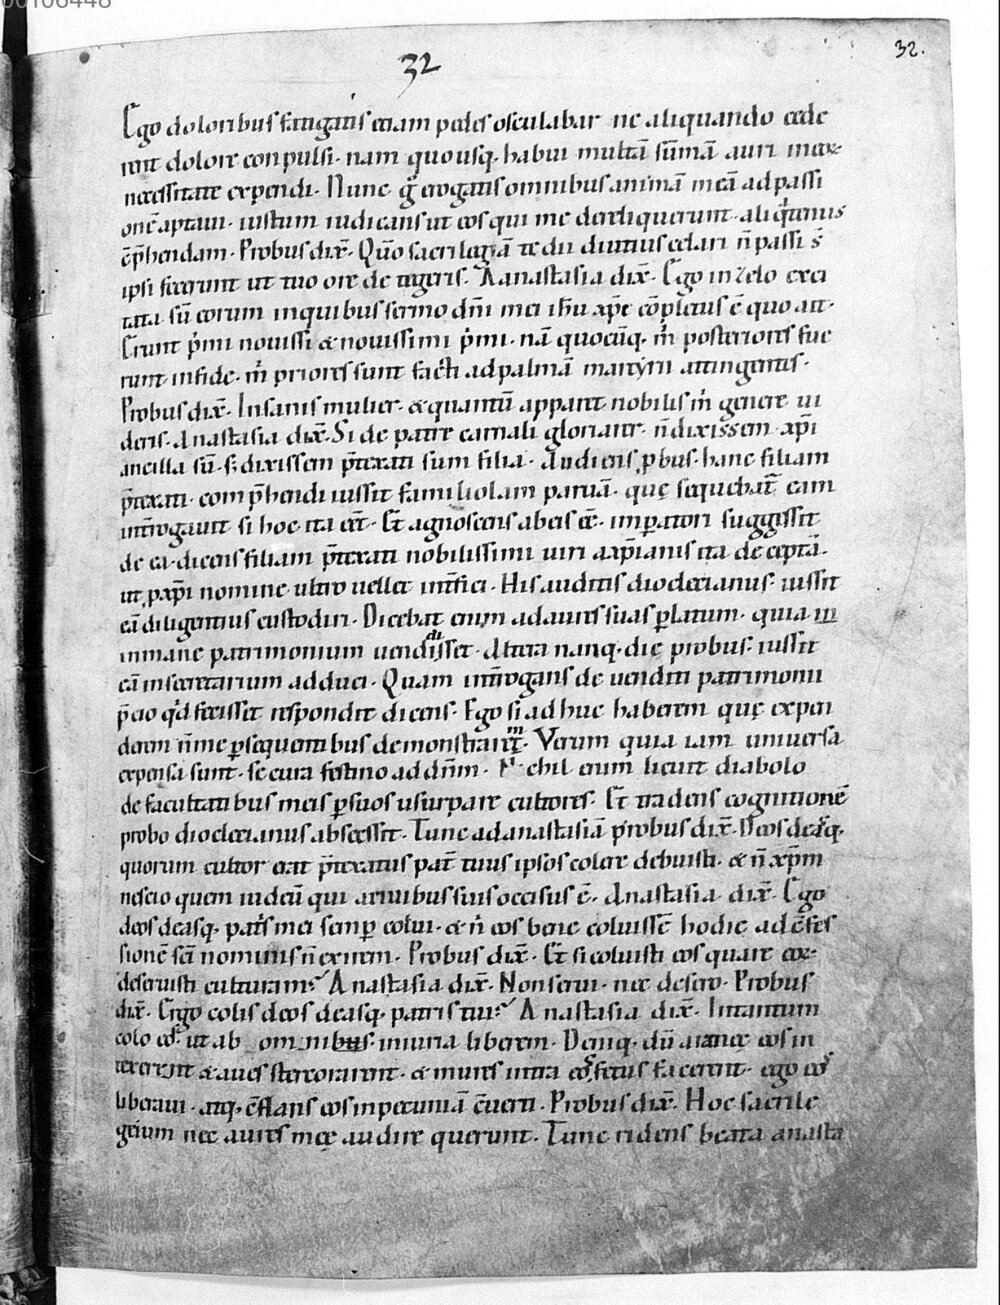 00106448
32
32.
Ego doloribus fatigatis etiam pedes osculabar ne aliquando cede
rent dolore conpulsi· nam quousq· habui multā sūmā auri in ea
necessitate expendi· Nunc g̊ erogatis omnibus animā meā ad passi
onē aptaui· iustum iudicans ut eos qui me dereliquerunt aliq̇tenus
c̄p̄hendam· Probus dix̄· Quō sacrilegā te dii diutius celari n̄ passi s̄
ipsi fecerunt ut tuo ore de tegeris· Aanastasia dix̄· Ego in zelo exci
tata sū eorum in quibus sermo dn̄i mei ihū xp̄e cōpletus ē quo ait·
Erunt p̍mi nouissi & nouissimi p̍mi· nā quocūq· m̊ posteriores fue
runt in fide· m̊ priores sunt facti ad palmā martyrii attingentes·
Probus dix̄· Insanis mulier· & quantū apparet nobilis m̊ genere ui
deris· Anastasia dix̄· Si de patre carnali gloriarer· n̄ dixissem xp̄i
ancilla sū· s; dixissem p̄texati sum filia· Audiens, pbus· hanc filiam
p̄texati· com p̄hendi iussit familiolam paruā· quę sequebat̄ eam
int̄rogauit si hoc ita eēt· Et agnoscens ab eis eē· imp̱atori suggessit
de ea· dicens filiam p̄texati nobilissimi uiri a xp̄ianis ita deceptā·
ut, p xp̄i nomine ultro uellet int̄fici· His auditis dioclecianus· iussit
eā diligentius custodiri· Dicebat enim ad aures suas p̱latum· quia in
inmane patrimonium uendi disset· Altera nanq· die probus· iussit
eā in secretarium adduci· Quam int̄rogans de uenditi patrimonii
p̄cio qd̍ fecisset respondit dicens· Ego si ad huc haberem quę expen
derem n̄ me p̱sequentibus demonstrarem· Verum quia iam uniuersa
expensa sunt· secura festino ad dn̄m· Nichil enim licuit diabolo
de facultatibus meis p̱ suos usurpare cultores· Et tradens cognitionē
probo dioclecianus abscessit· Tunc ad anastasiā probus dix̄· Deos deasq·
quorum cultor erat p̄texatus pat̄ tuus ipsos colere debuisti· & n̄ xp̄m
nescio quem iudeū qui a ciuibus suis occisus ē· Anastasia dix̄· Ego
deos deasq· pat̍s mei semp̱ colui· & n̍ eos bene coluissē hodie ad c̄fes
sionē sc̄i nominis n̄ exirem· Probus dix̄· Et si coluisti eos quare eor
deseruisti culturam? Anastasia dix̄· Non serui· nec desero· Probus
dix̄· Ergo colis deos deasq· patris tui? Anastasia dix̄· Intantum
colo eos· ut ab omnibus iniuria liberem· Deniq· dū aranee eos in
texerent & aues stercorarent· & mures intra eos fetus facerent· ego eos
liberaui· atq· c̄flans eos in pecuniā c̄uerti· Probus dix̄· Hoc sacrile
gium nec aures meę audire querunt· Tunc ridens beata anasta